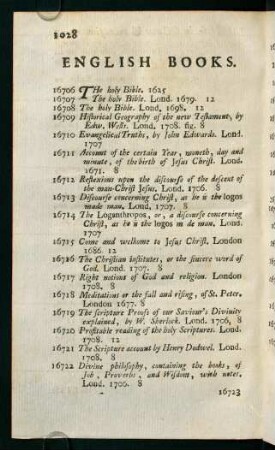 1028
ENGLISH BOOKS.
16706 THe holy Bible. 1625
16707 The holy Bible. Lond. 1679. 12
16708 The holy Bible. Lond. 1698. 12
16709 Historical Geography of the new Testament, by
Edw. Wells. Lond. 1708. fig. 8
16710 Evangelical Truths, by John Edwards. Lond.
1707
16711 Account of the certain Year, moneth, day and
minute, of the birth of Jesus Christ. Lond.
1671. 8
16712 Reflexions upon the discourse of the descent of
the man-Christ Jesus. Lond. 1706. 8
16713 Discourse concerning Christ, as he is the logos
made man. Lond. 1707. 8
16714 The Loganthropos, or, a discourse concerning
Christ, as he is the logos in de man. Lond.
1707
16715 Come and welkome to Jesus Christ. London
1686. 12
16716 The Christian Institutes, or the sincere word of
God. Lond. 1707. 8
16717 Right notions of God and religion. London
1708. 8
16718 Meditations or the fall and rising, of St. Peter.
London 1677. 8
16719 The scripture Proofs of our Saviour's Divinity
explained, by W. Sherlock. Lond. 1706, 8
16720 Profitable reading of the holy Scriptures. Lond.
1708. 12
16721 The Scripture account by Henry Dodwel. Lond.
1708. 8
16722 Divine philosophy, containing the books, of
Job, Proverbs, and Wisdom, with notes.
Lond. 1706. 8
16723